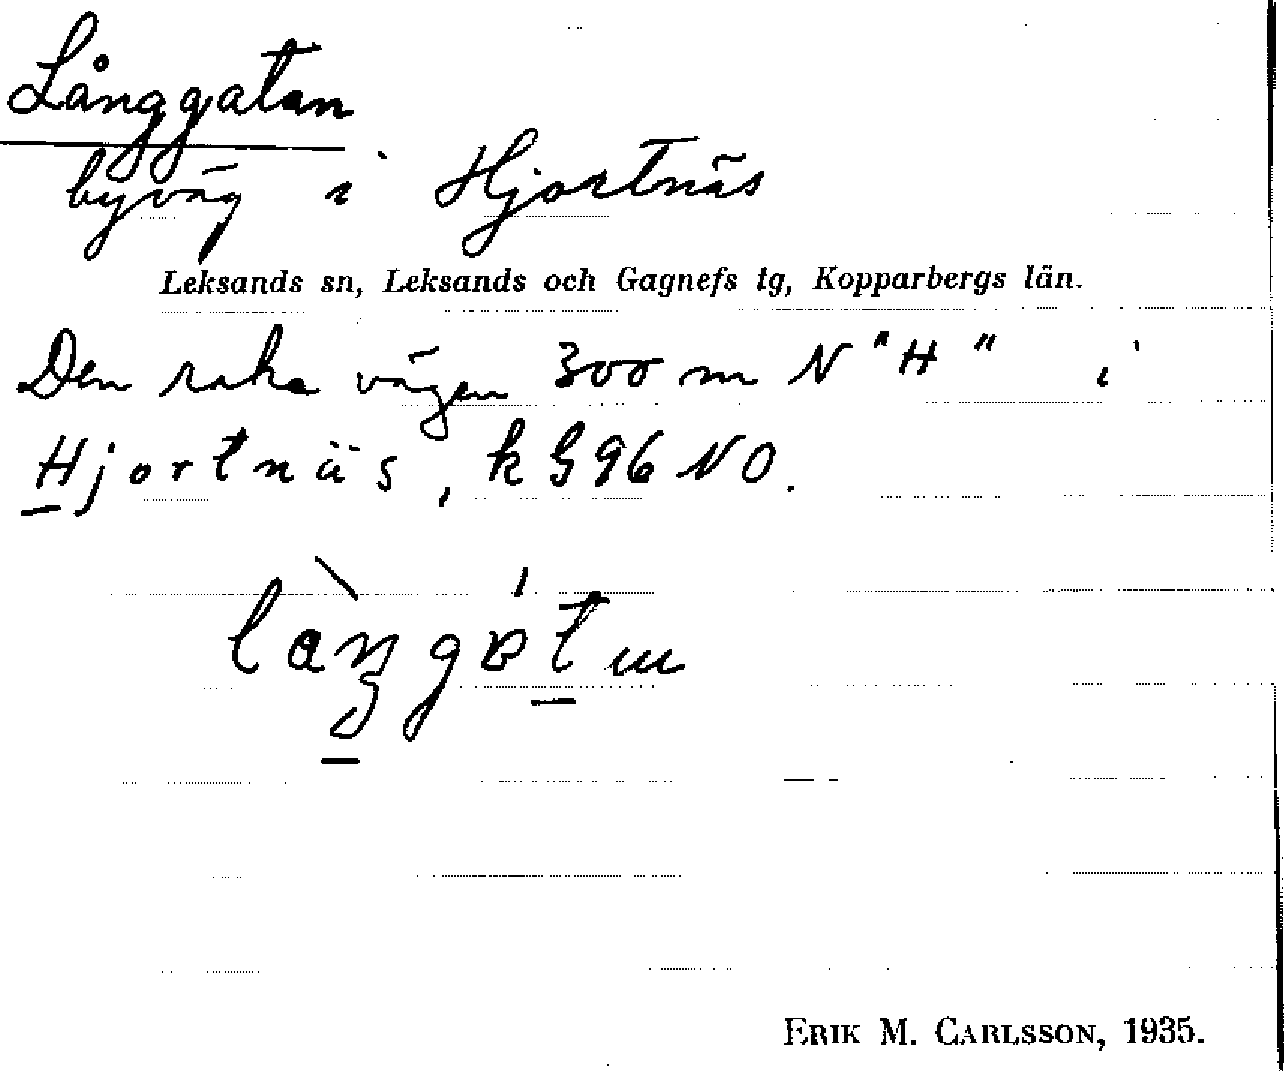 Långgatan
byväg i Hjortnäs
Leksands sn, Leksands och Gagnefs tg, Kopparbergs län.
Den raka vägen 300 m N "H" i
Hjortnäs, k G 96 NO.
ERIK M. CARLSSON, 1935.